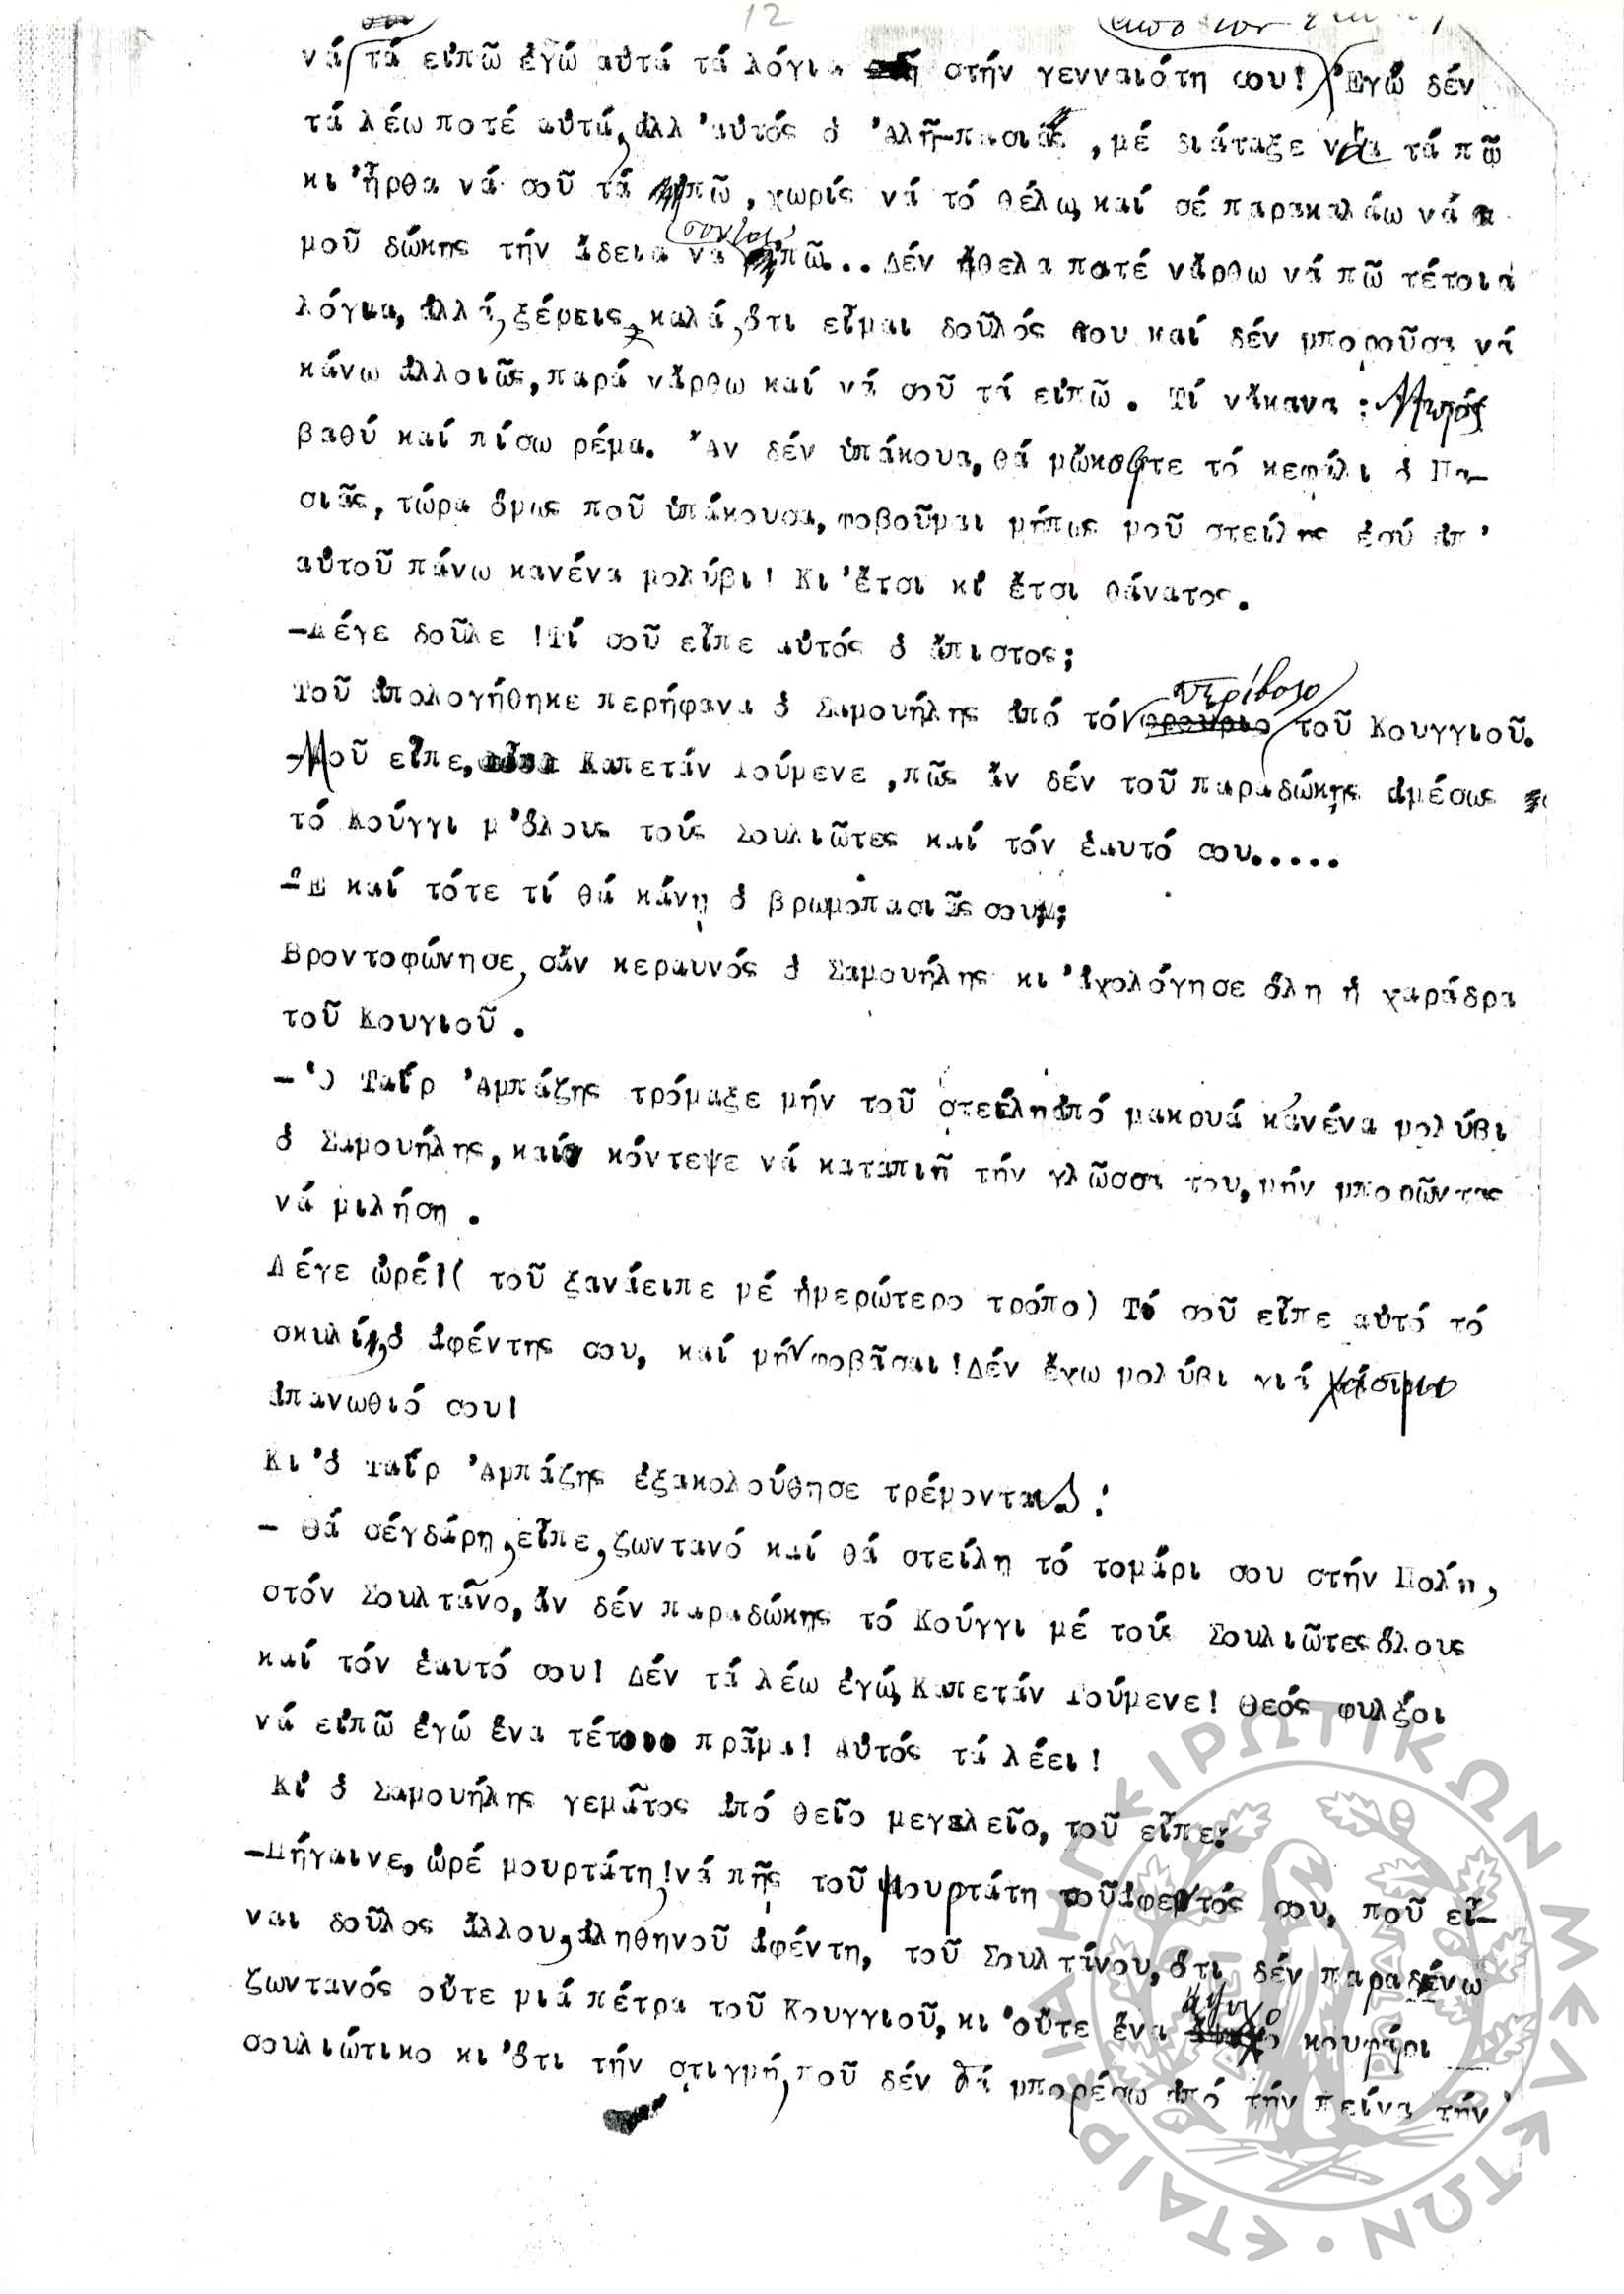 12
νά τά εἰπῶ ἐγώ αὐτά τά λόγια στήν γενναιότη σου! Ἐγώ δέν
τά λέω ποτέ αὐτά, ἀλλ' αὐτός ὁ Ἀλῆ-πασιᾶς, μέ διάταξε νά τά πῶ
κι' ἦρθα νά σοῦ τά πῶ, χωρίς νά τό θέλω, καί σέ παρακαλάω νά
μοῦ δώκης τήν ἄδεια νά πῶ... Δέν ἤθελα ποτέ νἄρθω νά πῶ τέτοια
λόγια, ἀλλά, ξέρεις, καλά, ὅτι εἶμαι δοῦλός του καί δέν μποροῦσα νά
κάνω ἀλλοιῶς, παρά νἄρθω καί νά σοῦ τά εἰπῶ. Τί νἄκανα; Μπρός
βαθύ καί πίσω ρέμα. Ἄν δέν ὑπάκουα, θά μὤκοφτε τό κεφάλι ὁ Πα-
σιᾶς, τώρα ὅμως ποῦ ὑπάκουσα, φοβοῦμαι μήπως μοῦ στείλης ἐσύ ἀπ'
αὐτοῦ πάνω κανένα μολύβι! Κι' ἔτσι κι' ἔτσι θάνατος.
-Λέγε δοῦλε! Τί σοῦ εἶπε αὐτός ὁ ἄπιστος;
Τοῦ ἀπολογήθηκε περήφανα ὁ Σαμουήλης ἀπό τόν περίβολο τοῦ Κουγγιοῦ.
-Μοῦ εἶπε, Καπετάν Γούμενε, πῶς ἄν δέν τοῦ παραδώκης ἀμέσως
τό Κούγγι μ' ὅλους τούς Σουλιῶτες καί τόν ἑαυτό σου.....
-Ἔ καί τότε τί θά κάνη ὁ βρωμόπασιᾶς σου;
Βροντοφώνησε, σἄν κεραυνός ὁ Σαμουήλης κι' ἀχολόγησε ὅλη ἡ χαράδρα
τοῦ Κουγιοῦ.
- Ὁ Ταΐρ Ἀμπάζης τρόμαξε μήν τοῦ στείλη ἀπό μακρυά κανένα μολύβι
ὁ Σαμουήλης, καί κόντεψε νά καταπιῆ τήν γλῶσσα του, μήν μπορῶντας
νά μιλήση.
Λέγε ὠρέ! ( τοῦ ξανάειπε μέ ἡμερώτερο τρόπο) Τί σοῦ εἶπε αὐτό τό
σκυλί, ὁ ἀφέντης σου, καί μήν φοβᾶσαι! Δέν ἔχω μολύβι γιά χάσιμο
ἀπανωθιό σου!
Κι' ὁ Ταΐρ Ἀμπάζης ἐξακολούθησε τρέμοντας:
- Θά σέ γδάρη, εἶπε, ζωντανό καί θά στείλη τό τομάρι σου στήν Πόλη,
στόν Σουλτᾶνο, ἄν δέν παραδώκης τό Κούγγι μέ τούς Σουλιῶτες ὅλους
καί τόν ἑαυτό σου! Δέν τά λέω ἐγώ, Καπετάν Γούμενε! Θεός φυλξοι
νά εἰπῶ ἐγώ ἕνα τέτοιο πρᾶμα! Αὐτός τά λέει!
Κι' ὁ Σαμουήλης γεμᾶτος ἀπό θεῖο μεγαλεῖο, τοῦ εἶπε:
-Πήγαινε, ὠρέ μουρτάτη! νά πῆς τοῦ μουρτάτη τοῦ ἀφεντός σου, ποῦ εἶ-
ναι δοῦλος ἄλλου, ἀληθηνοῦ ἀφέντη, τοῦ Σουλτάνου, ὅτι δέν παραδένω
ζωντανός οὔτε μιά πέτρα τοῦ Κουγγιοῦ, κι' οὔτε ἕνα ἄψυχο κουφάρι
σουλιώτικο κι' ὅτι τήν στιγμή, ποῦ δέν θά μπορέσω ἀπό τήν πείνα τήν
ΕΤΑΙΡΕΙΑ ΗΠΕΙΡΩΤΙΚΩΝ ΜΕΛΕΤΩΝ